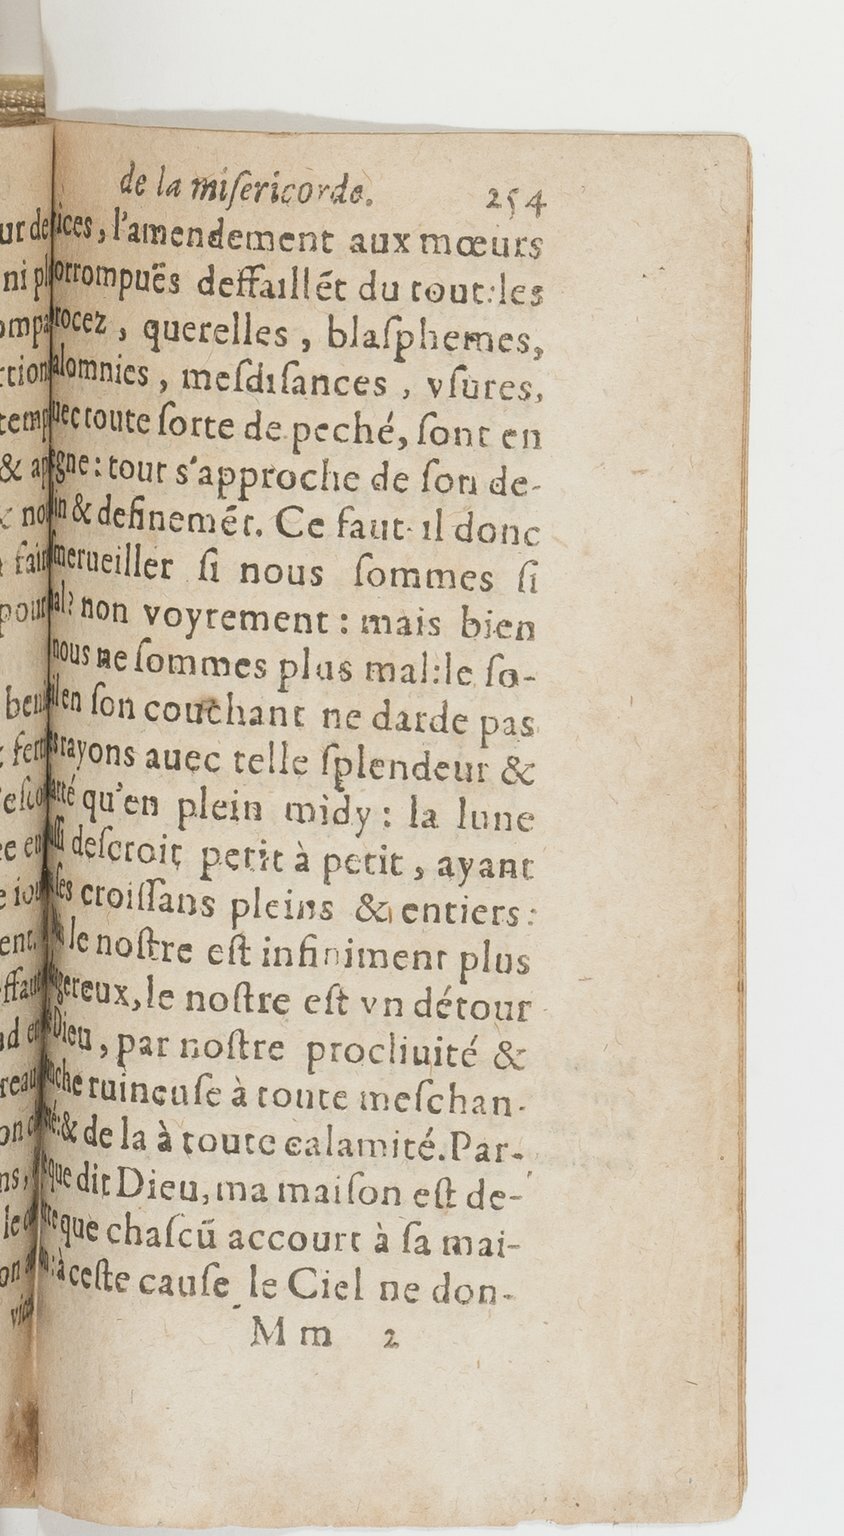 de la miſericorde. 254
ices, l'amendement aux mœurs
orrompuës deffaillét du tout: les
rocez, querelles, blaſphemes,
alomnies, meſdiſances, vſures,
uec toute ſorte de peché, ſont en
gne: tout s'approche de ſon de-
in & definemét. Ce faut-il donc
merueiller ſi nous ſommes ſi
al? non voyrement: mais bien
nous ne ſommes plus mal: le ſo-
en ſon couchant ne darde pas
rayons auec telle ſplendeur &
té qu'en plein midy: la lune
deſcroit petit à petit, ayant
ſes croiſſans pleins & entiers:
le noſtre eſt infiniment plus
ereux, le noſtre eſt vn détour
Dieu, par noſtre procliuité &
che ruineuſe à toute meſchan-
& de la à toute calamité. Par-
que dit Dieu, ma maiſon eſt de-
que chaſcū accourt à ſa mai-
à ceſte cauſe le Ciel ne don-
Mm 2